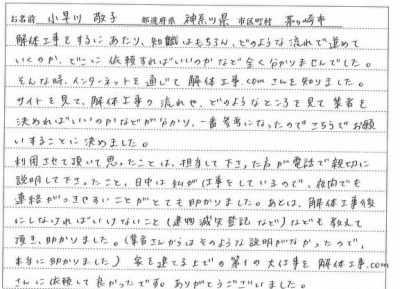 お名前 小早川 敬子 都道府県 神奈川県 市区町村 茅ヶ崎市
解体工事をするにあたり、知識はもちろん、どのような流れで進めて
いくのか、どこに依頼すればいいのかなど全く分かりませんでした。
そんな時、インターネットを通じて解体工事.comさんを知りました。
サイトを見て、解体工事の流れや、どのようなところを見て業者を
決めればいいのかなどが分かり、一番参考になったのでこちらでお願
いすることに決めました。
利用させて頂いて思ったことは、担当して下さった方が電話で親切に
説明して下さったこと、日中は私が仕事をしているので、夜間でも
連絡がつきやすいことがとても助かりました。あとは、解体工事後
にしなければいけないこと(建物滅失登記など)なども教えて
頂き、助かりました。(業者さんからはそのような説明がなかったので、
本当に助かりました)家を建てる上での第1の大仕事を解体工事.com
さんに依頼して良かったです。ありがとうございました。